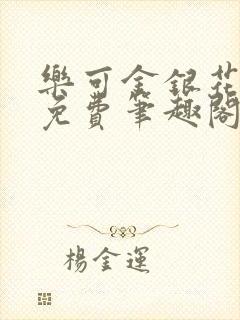 樂可金銀花
免費筆趣閣
楊金運